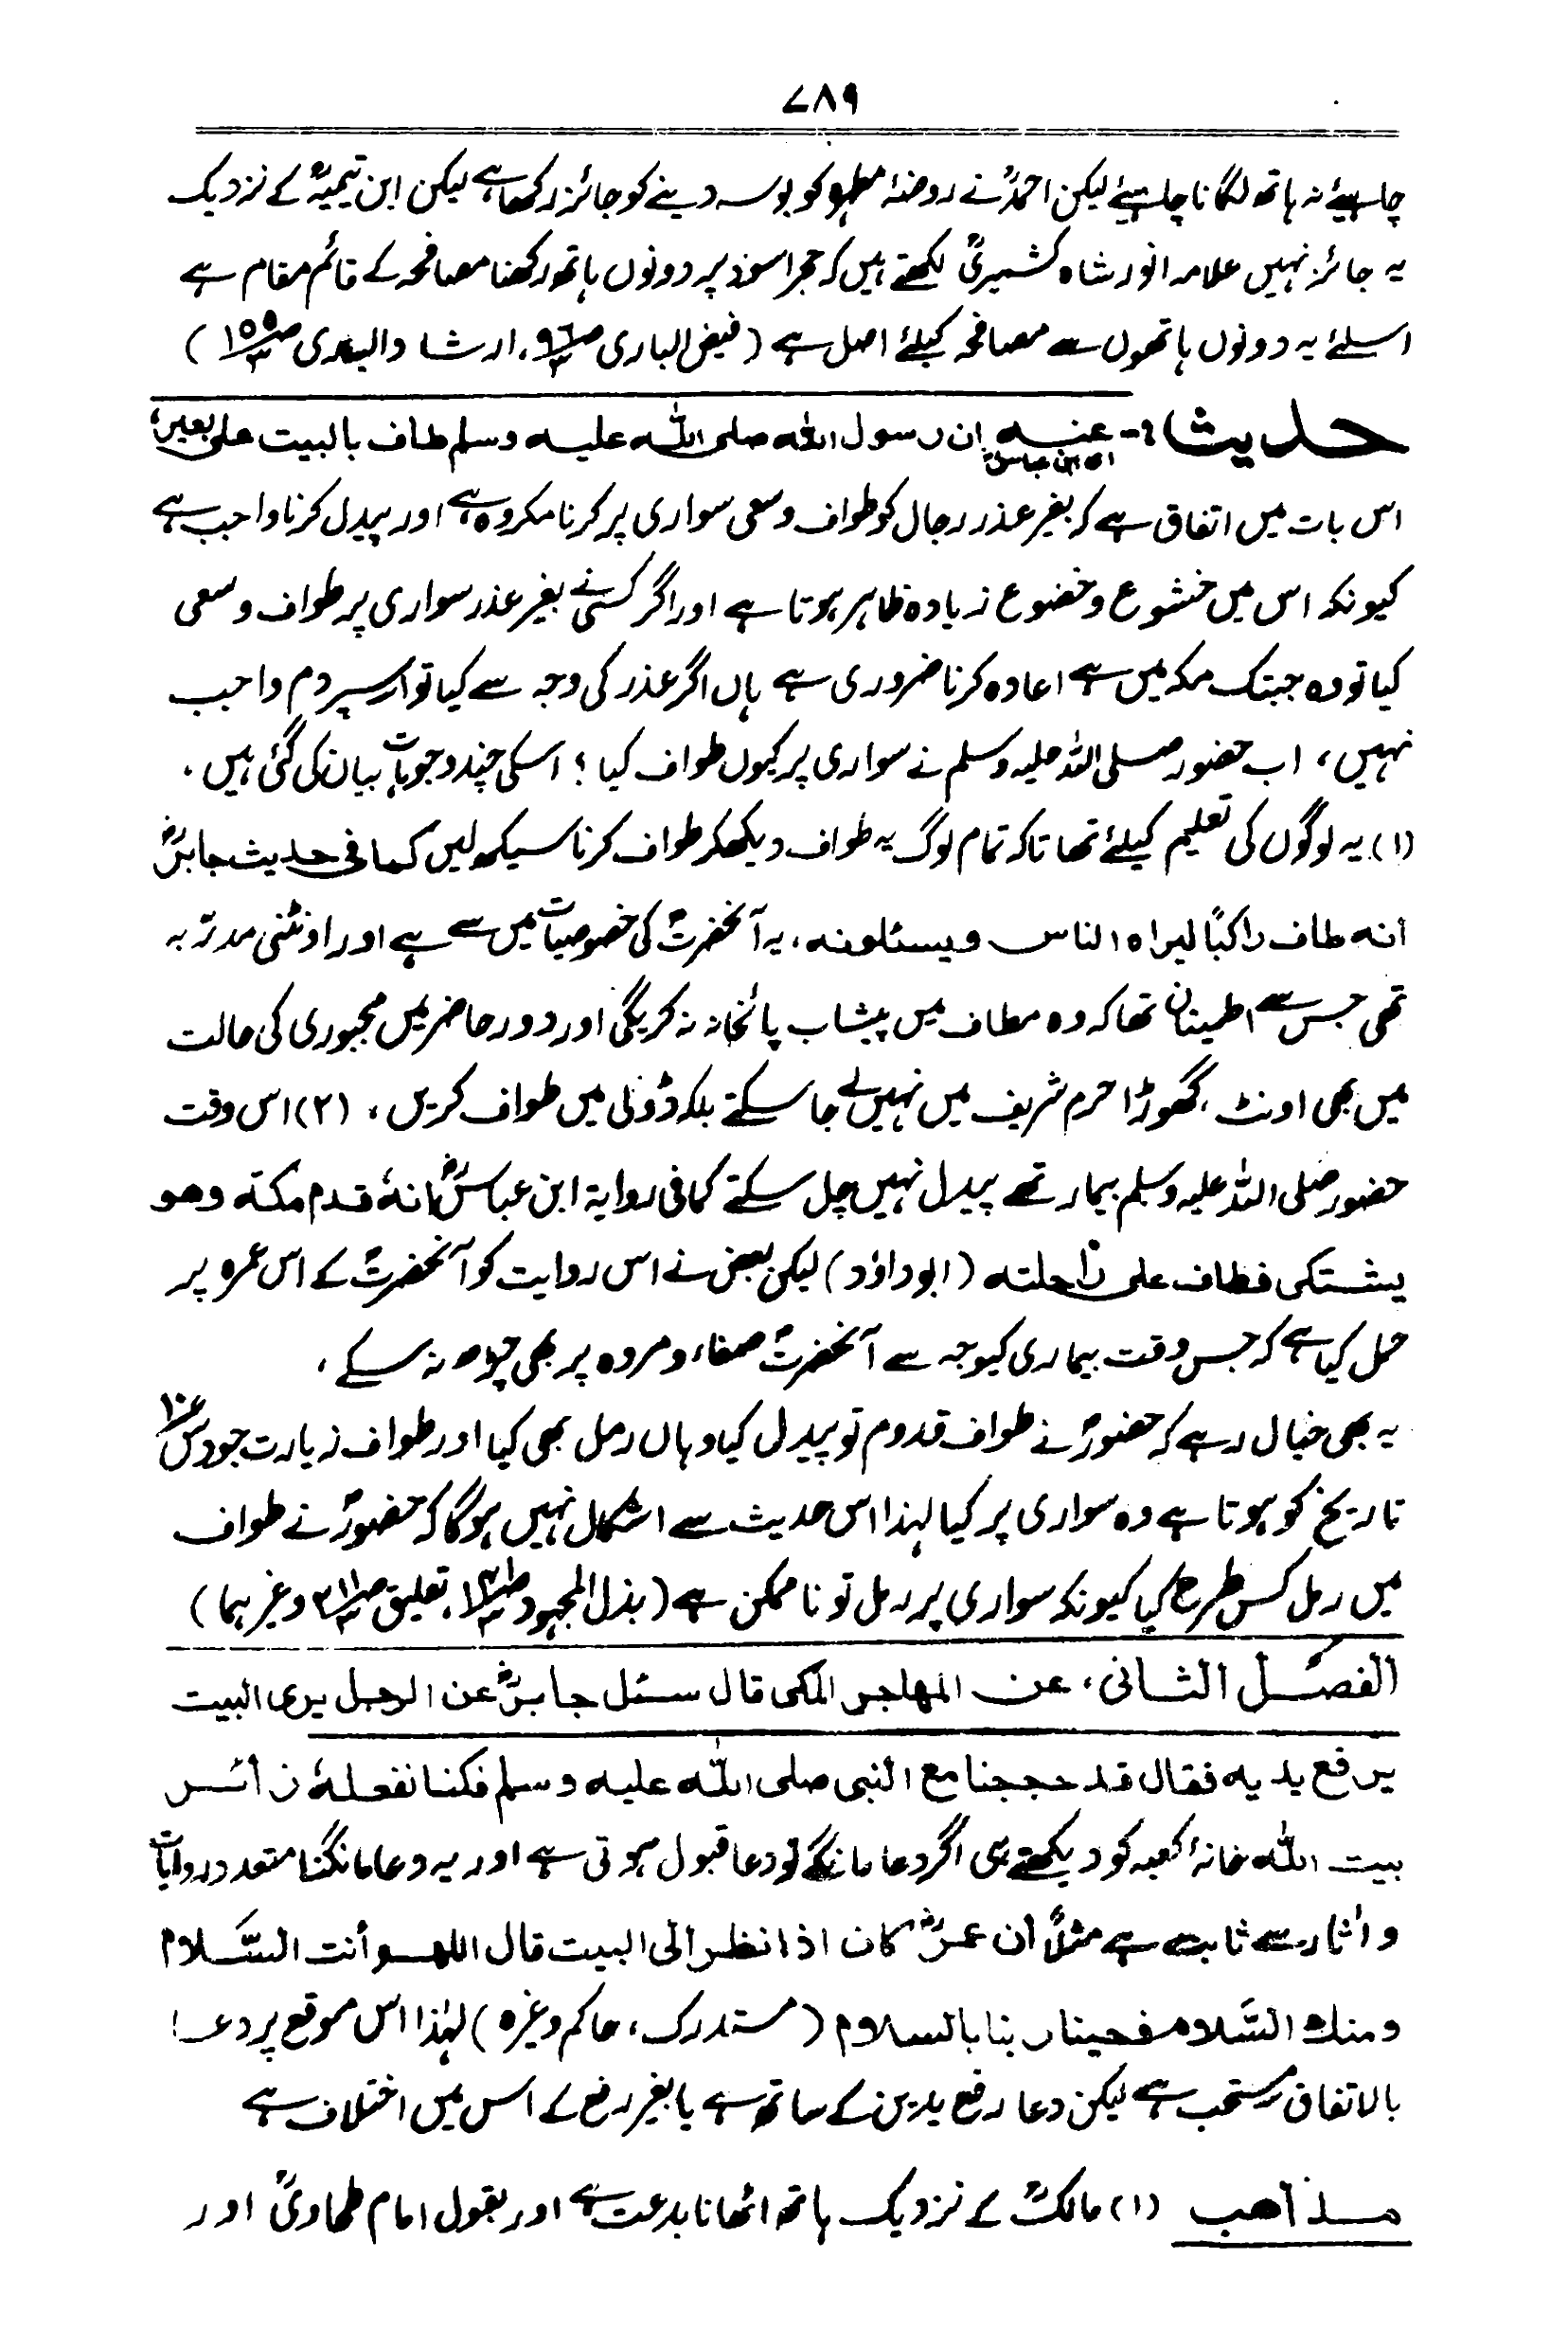 ۷۸۹
چاہیئے نہ ہاتھ لگانا چاہیئے لیکن احمدؒ نے روضۂ مطہرہ کو بوسہ دینے کو جائز رکھا ہے لیکن ابن تیمیہؒ کے نزدیک
یہ جائز نہیں علامہ انور شاہ کشمیریؒ لکھتے ہیں کہ حجر اسود پر دونوں ہاتھ رکھنا مصافحہ کے قائم مقام ہے
اسلئے یہ دونوں ہاتھوں سے مصافحہ کیلئے اصل ہے (فیض الباری ص۹۶، ارشاد الساری ص۱۵۹)
حدیث :- عنہ ان رسول اللہ صلی اللہ علیہ وسلم طاف بالبیت علی بعیرٍ؛
ای ابن عباسؓ
اس بات میں اتفاق ہے کہ بغیر عذر رجال کو طواف وسعی سواری پر کرنا مکروہ ہے اور پیدل کرنا واجب ہے
کیونکہ اس میں خشوع وخضوع زیادہ ظاہر ہوتا ہے اور اگر کسی نے بغیر عذر سواری پر طواف وسعی
کیا تو وہ جبتک مکہ میں ہے اعادہ کرنا ضروری ہے ہاں اگر عذر کی وجہ سے کیا تو اسپر دم واجب
نہیں، اب حضور صلی اللہ علیہ وسلم نے سواری پر کیوں طواف کیا ؟ اسکی چند وجوہات بیان کی گئی ہیں،
(۱) یہ لوگوں کی تعلیم کیلئے تھا تاکہ تمام لوگ یہ طواف دیکھکر طواف کرنا سیکھ لیں کما فی حدیث جابرؓ
انہ طاف راکبًا لیراہ الناس ویسئلونہ، یہ آنحضرتؐ کی خصوصیات میں سے ہے اور اونٹنی مدرّبہ
تھی جس سے اطمینان تھا کہ وہ مطاف میں پیشاب پائخانہ نہ کریگی اور دور حاضر میں مجبوری کی حالت
میں بھی اونٹ، گھوڑا حرم شریف میں نہیں لے جا سکتے بلکہ ڈولی میں طواف کریں، (۲) اس وقت
حضور صلی اللہ علیہ وسلم بیمار تھے پیدل نہیں چل سکتے کما فی روایۃ ابن عباسؓ انہٗ قدم مکۃ وھو
یشتکی فطاف علی راحلتہ (ابوداؤد) لیکن بعض نے اس روایت کو آنحضرتؐ کے اس عمرہ پر
حمل کیا ہے کہ جس وقت بیماری کیوجہ سے آنحضرتؐ صفاء ومروہ پر بھی چڑھ نہ سکے،
یہ بھی خیال رہے کہ حضورؐ نے طواف قدوم تو پیدل کیا وہاں رمل بھی کیا اور طواف زیارت جو دس ۱۰
تاریخ کو ہوتا ہے وہ سواری پر کیا لہذا اس حدیث سے اشکال نہیں ہوگا کہ حضورؐ نے طواف
میں رمل کس طرح کیا کیونکہ سواری پر رمل تو ناممکن ہے (بذل المجہود، تعلیق وغیرہما)
الفصل الثانی، عن المہاجر المکی قال سئل جابرؓ عن الرجل یری البیت
یرفع یدیہ فقال قد حججنا مع النبی صلی اللہ علیہ وسلم فکنا نفعلہٗ زائر
بیت اللہ خانۂ کعبہ کو دیکھتے ہی اگر دعا مانگے تو دعا قبول ہوتی ہے اور یہ دعا مانگنا متعدد روایات
و اٰثار سے ثابت ہے مثلاً أن عمرؓ کان اذا نظر الی البیت قال اللھم أنت السّلام
ومنك السّلام فحینا ربنا بالسلام (مستدرک، حاکم وغیرہ) لہٰذا اس موقع پر دعا
بالاتفاق مستحب ہے لیکن دعا رفع یدین کے ساتھ ہے یا بغیر رفع کے اس میں اختلاف ہے
مذاھب (۱) مالکؒ کے نزدیک ہاتھ اٹھانا بدعت ہے اور بقول امام طحاویؒ اور